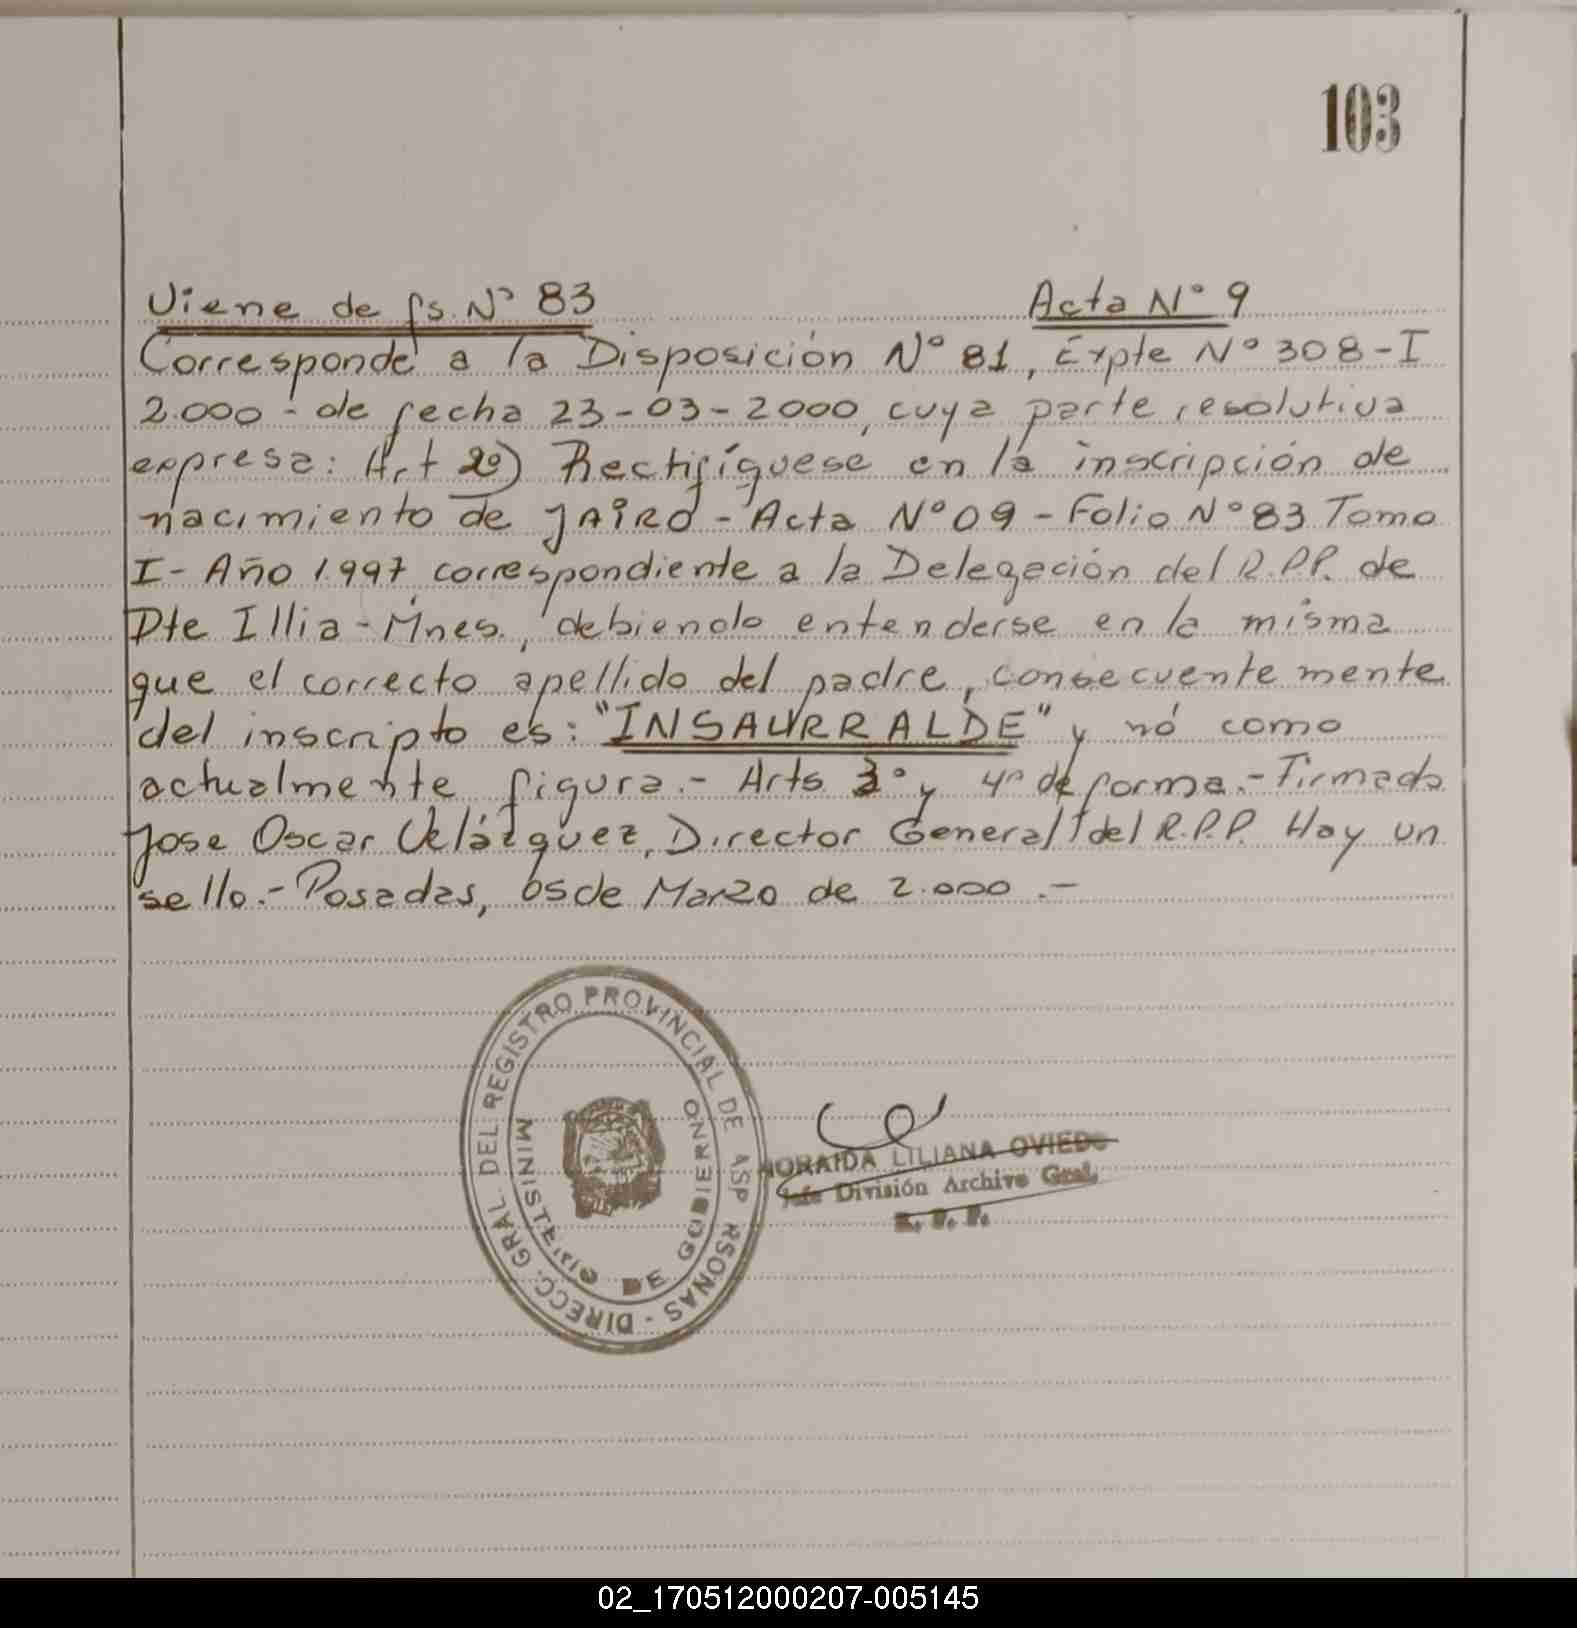 103
Viene de fs. N° 83 Acta N° 9
Corresponde a la Disposición N° 81, Expte N° 308-I
2.000 - de fecha 23-03-2000, cuya parte resolutiva
expresa: Art 2º) Rectifíquese en la inscripción de
nacimiento de JAIRO - Acta N° 09 - Folio N° 83 Tomo
I - Año 1.997 correspondiente a la Delegación del R.P.P. de
Pte Illia - Mnes., debiendo entenderse en la misma
que el correcto apellido del padre, consecuentemente
del inscripto es: "INSAURRALDE" y nó como
actualmente figura. - Arts. 3° y 4° de forma. - Firmado
Jose Oscar Velázquez, Director General del R.P.P. Hay un
sello. - Posadas, 05 de Marzo de 2.000 . -
DIRECC. GRAL. DEL REGISTRO PROVINCIAL DE ASP RSONAS -
MINISTERIO DE GOBIERNO
ORAIDA LILIANA OVIEDO
Jefe División Archivo Gral.
R. P. P.
02_170512000207-005145